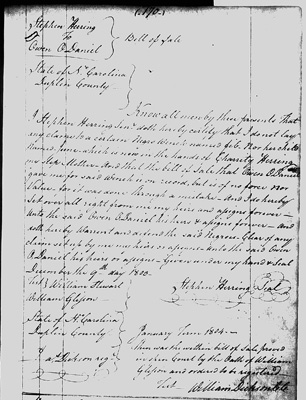 Stephen Herring
To
Owen O Daniel
Bill of Sale
State of N. Carolina
Duplin County
Know all men by these presents That
I Stephen Herring Senr. doth hereby certify that I do not lay
any claim to a certain Negro Wench named
named June, which is now in the hands of Charity Herring
my Step Mother - And that the bill of Sale that Owen O Daniel
gave me for said Wench on record but is of no force nor
Value for it was done through a mistake - And I do hereby
Set over all right from me my heirs and assigns forever -
Unto the said Owen O Daniel his heirs & assigns forever - And
doth hereby Warrant and defend the said Negroes Clear of any
claim set up by me my heirs or assigns Unto the said Owen
O Daniel his heirs or assigns - Given under my hand & Seal
December the 9th day 1800.
Test William Stewart
William Gipson
Stephen Herring Seal
State of N. Carolina
Duplin County
January Term 1804 -
Then was the within bill of Sale proved
in Open Court by the Oath of William
Gipson and ordered to be registered
Test William Dickson